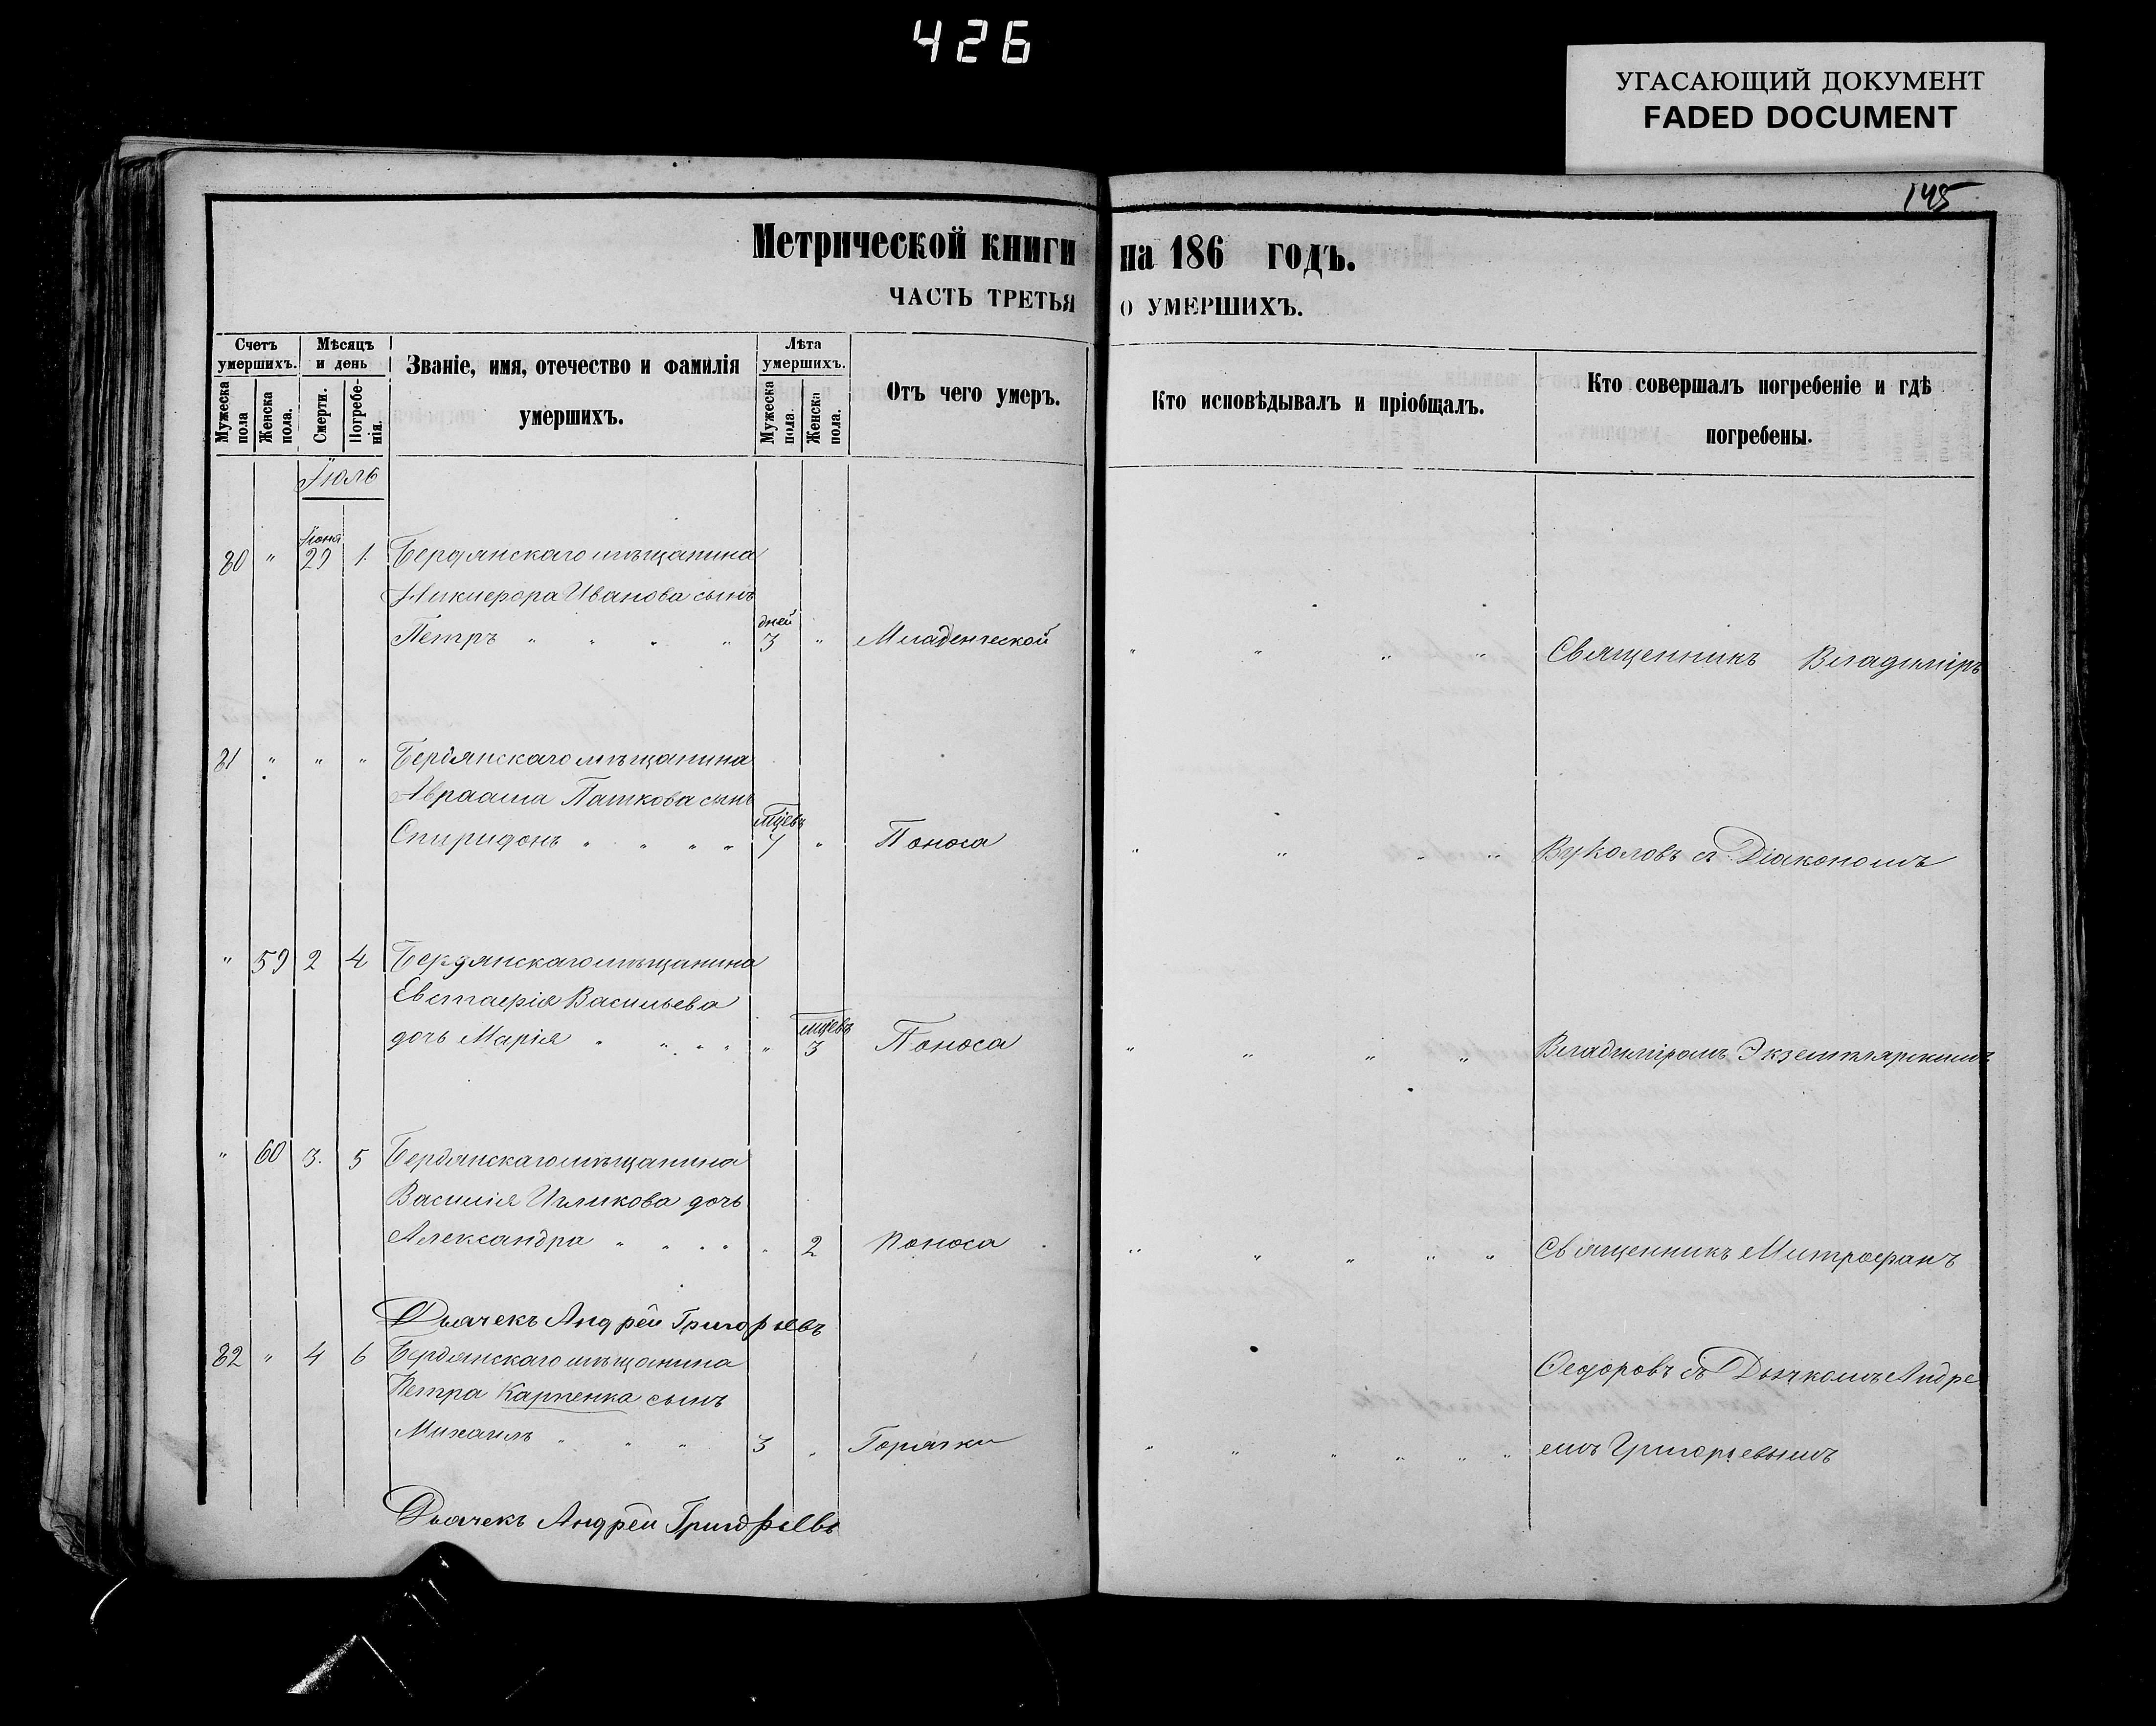 426
УГАСАЮЩИЙ ДОКУМЕНТ
FADED DOCUMENT
145
Метрической книги на 186 годъ.
ЧАСТЬ ТРЕТЬЯ О УМЕРШИХЪ.
Счетъ умершихъ.
Мужеска пола
Женска пола.
Мѣсяцъ и день
Смерти.
Погребенія.
Званіе, имя, отечество и фамилія
умершихъ.
Лѣта умершихъ.
Мужеска пола
Женска пола.
Отъ чего умеръ.
Кто исповѣдывалъ и пріобщалъ.
Кто совершалъ погребеніе и гдѣ
погребены.
Іюль
Іюня
80 " 29 1. Бердянскаго мѣщанина
Никифора Иванова сынъ
дней
Петръ " " " " 3 " Младенческой " " " " Священникъ Владиміръ
81 " " " Бердянскаго мѣщанина
Авраама Паткова сынъ
мцевъ
Спиридонъ " " " " 7 " Поноса " " " " Вуколовъ съ Діакономъ
" 59 2 4 Бердянскаго мѣщанина
Евстафія Васильева
мцевъ
дочь Марія " " " " " 3 Поноса " " " " Владиміромъ Экземплярскимъ
" 60 3. 5 Бердянскаго мѣщанина
Василія Игликова дочь
Александра " " " " " 2 Поноса " " " " " Священникъ Митрофанъ
Дьячекъ Андрей Григорьевъ
82 " 4 6 Бердянскаго мѣщанина
Федоровъ съ Дьячкомъ Андре
Петра Карпенка сынъ
Михаилъ " " " 3 " Горячки " " " " " " емъ Григорьевымъ
Дьячекъ Андрей Григорьевъ